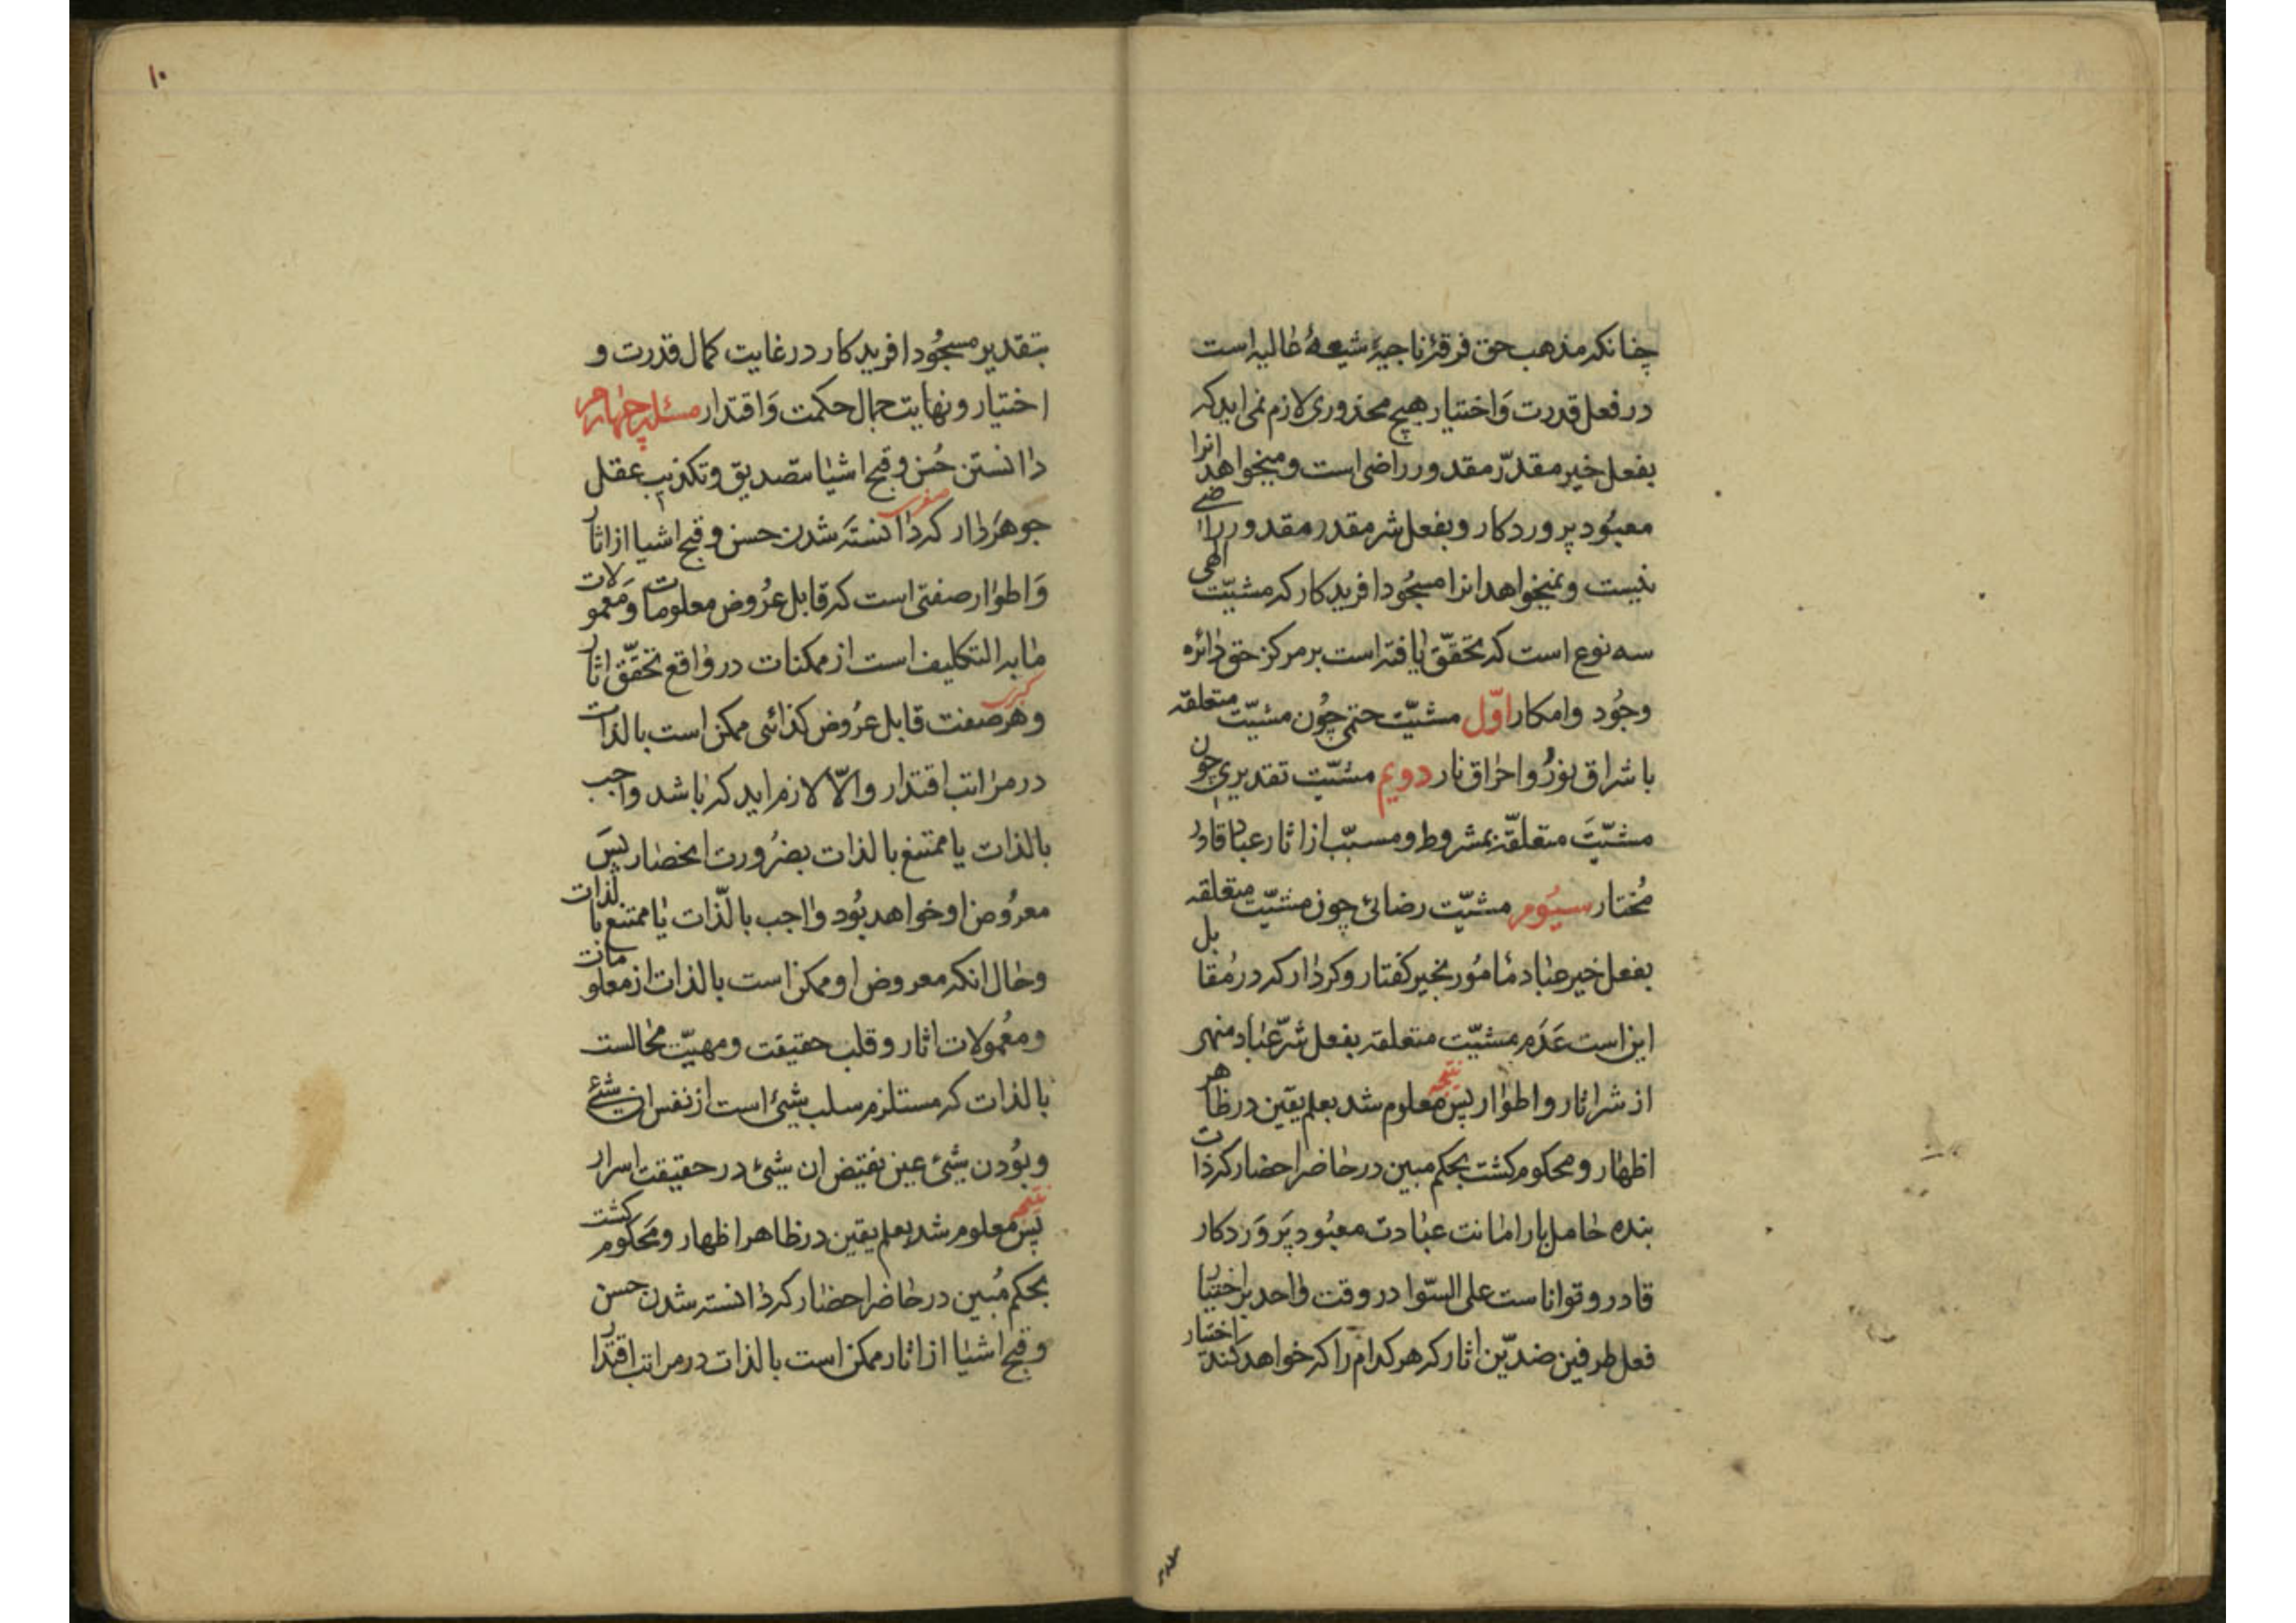 چنانکه مذهب حق فرقۀ ناجیۀ شیعۀ غالیه است
در فعل قدرت وَاختیار هیچ محذوری لازم نمی اید که
بفعل خیر مقدّر مقدور راضی است و میخواهد انرا
معبُود پروردکار و بفعل شر مقدر مقدور راضے
نیست و نمیخواهد انرا مسجُود افریدکار که مشیّت الهی
سه نوع است که تحقّق یافته است بر مرکز حق دائره
وجُود وامکار اوّل مشیّت حتمی چُون مشیّت متعلقه
باشراق نورُ واحراق نار دویم مشیّت تقدیری چون
مشیّتَ متعلقّه بمشروط و مسبّب از اثار عباد قادر
مُختار سیُوم مشیّت رضائی چون مشیّت متعلقه
بفعل خیر عباد مامُور بخیر کفتار و کردار که در مُقابل
این است عَدَم مشیّت متعلقه بفعل شرّ عباد منهی
از شر اثار و اطوار پس نتیجه معلوم شد بعلم یقین در ظاهر
اظهار و محکوم کشت بحکم مبین در حاضر احضار که ذات
بنده حامل بار امانت عبادت معبُود پَروَردکار
قادر و تواناست علی السّوا در وقت واحد بر اختیار
فعل طرفین ضدیّن اثار که هر کدام را که خواهد اختیار کند
۱۰
بتقدیر مسجُود افریدکار در غایت کمال قدرت و
اختیار و نهایت جمال حکمت وَاقتدار مسئله چهارم
دانستن حُسن و قبح اشیا بتصدیق و تکذیب عقل
جوهَردار که دانستَه شدن حسن و قبح اشیا از اثار
وَاطوار صفتی است که قابل عرُوض معلومات وَمعمولات
مابه التکلیف است از ممکنات در واقع تحقّق اثار
و هر صفت قابل عرُوض کذائی ممکن است بالذات
در مراتب اقتدار والّا لازم اید که باشد واجب
بالذات یا ممتنع بالذات بضرُورت انحصار پسَ
معرُوض او خواهد بُود واجب بالّذات یا ممتنع بالذات
وحال انکه معروض او ممکن است بالذات از معلومات
ومعُمولات اثار و قلب حقیقت ومهیّت محالست
بالذات که مستلزم سلب شیئ است از نفس ان شئ
وبوُدن شیئ عین نقیض ان شیئ در حقیقت اسرار
پَس نتیجه معلوم شد بعلم یقین در ظاهر اظهار ومحَکوم کشت
بحکم مُبین در حاضر احضار که دانسته شدن حسن
وقبح اشیا از اثار ممکن است بالذات در مراتب اقتدار